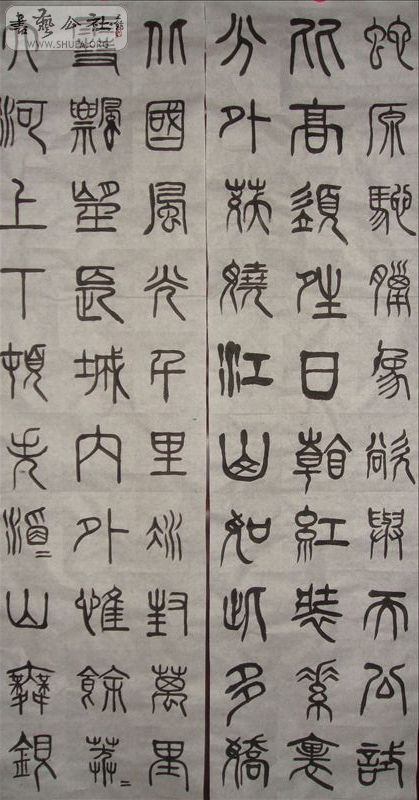 書藝公社
WWW.SHUFA.ORG
北國風光千里冰封萬里
雪飄望長城內外惟餘莽〻
大河上下頓失滔〻山舞銀
蛇原馳臘象欲與天公試
比高須晴日看紅裝素裹
分外妖嬈江山如此多嬌